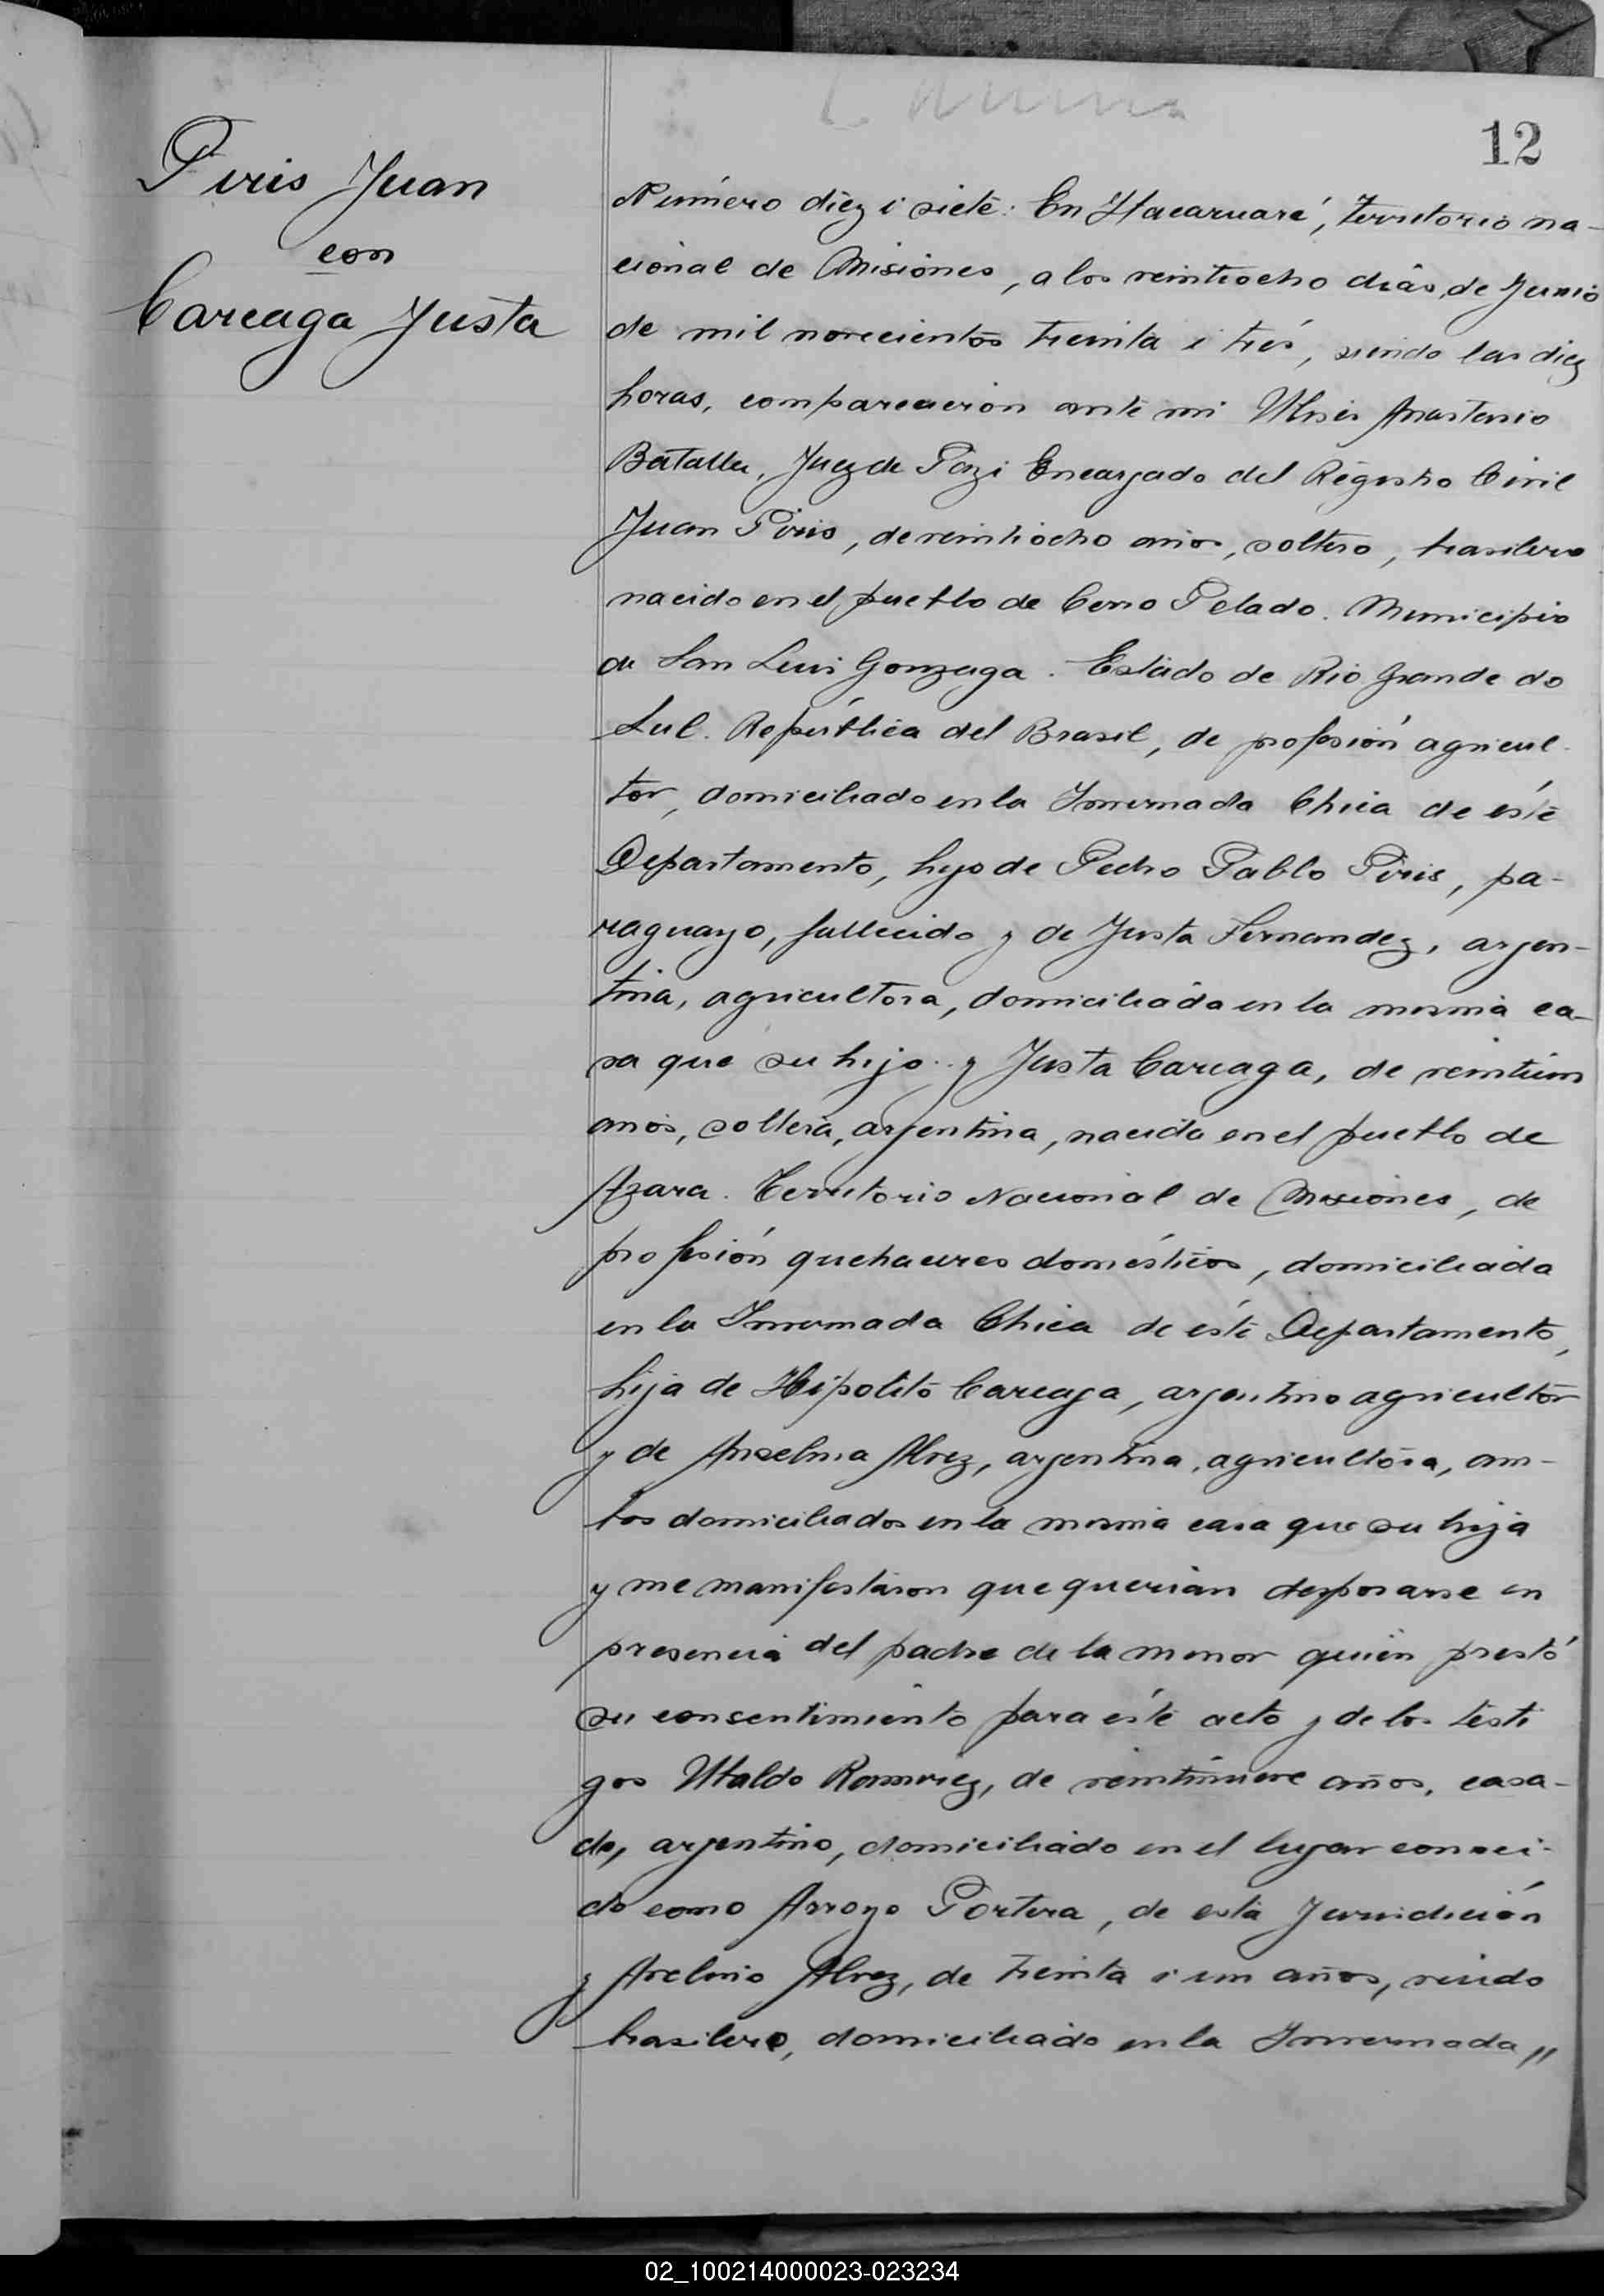 12
Piris Juan
con
Careaga Justa
Número diez i siete: En Itacaruaré, Territorio na-
cional de Misiones, a los veintiocho dias de Junio
de mil novecientos treinta i trés, siendo las diez
horas, comparecieron ante mi Ulises Anastasio
Batalla, Juez de Paz i Encargado del Registro Civil
Juan Piris, de veintiocho años, soltero, brasilero
nacido en el pueblo de Cerro Pelado. Municipio
de San Luis Gonzaga. Estado de Rio Grande do
Sul. República del Brasil, de profesión agricul-
tor, domiciliado en la Invernada Chica de éste
Departamento, hijo de Pedro Pablo Piris, pa-
raguayo, fallecido y de Justa Fernandez, argen-
tina, agricultora, domiciliada en la misma ca-
sa que su hijo y Justa Careaga, de veintiun
anos, soltera, argentina, nacida en el pueblo de
Azara. Territorio Nacional de Misiones, de
profesión quehaceres domésticos, domiciliada
en la Invernada Chica de éste Departamento,
hija de Hipolito Careaga, argentino agricultor
y de Anselma Alvez, argentina, agricultora, am-
bos domiciliados en la misma casa que su hija
y me manifestaron que querian desposarse en
presencia del padre de la menor quien prestó
su consentimiento para éste acto y de los testi
gos Ubaldo Ramirez, de veintinueve años, casa-
do, argentino, domiciliado en el lugar conoci-
do como Arroyo Portera, de esta Jurisdición
y Avelino Alvez, de treinta i un años, viudo
brasilero, domiciliado en la Invernada "
02_100214000023-023234